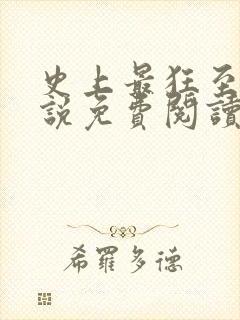 史上最狂至
說免費閱讀
希羅多德